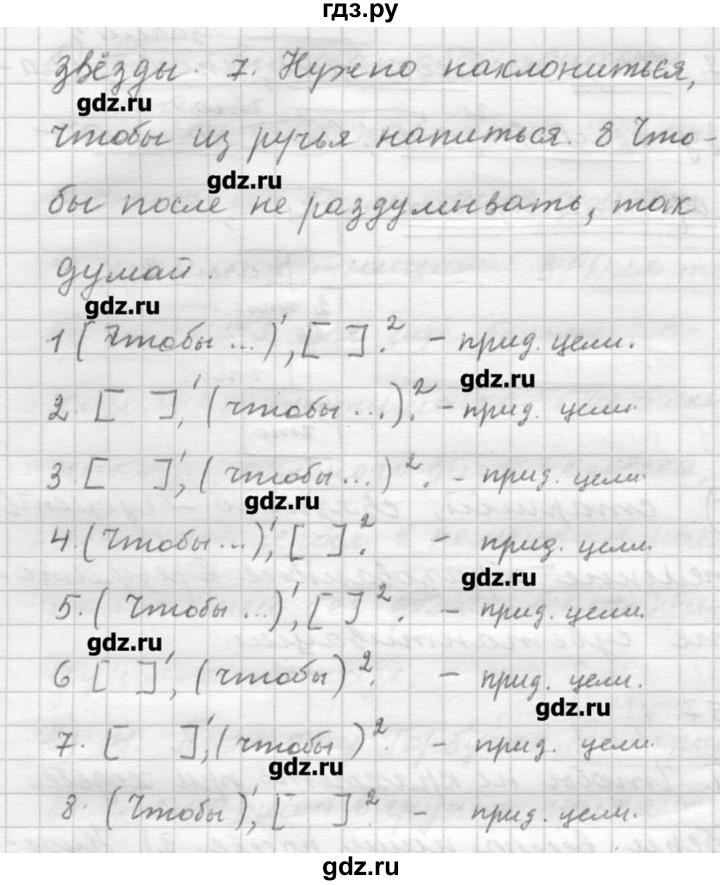 гдз.ру
звёзды. 7. Нужно наклониться,
gdz.ru
чтобы из ручья напиться. 8 Что-
gdz.ru
бы после, не раздумывать, так
думай.
gdz.ru
1 (Чтобы ...)', [ ].² - прид. цели.
gdz.ru
2. [ ]', (чтобы ...).² - прид. цели.
3 [ ]', (чтобы ...)². - прид. цели.
gdz.ru
4. (Чтобы ...)', [ ].² - прид. цели.
gdz.ru
5. (Чтобы ...)', [ ]². - прид. цели.
gdz.ru
6 [ ]', (чтобы)². - прид. цели.
gdz.ru
7. [ ]', (чтобы)². - прид. цели.
gdz.ru
8. (Чтобы)', [ ].² - прид. цели.
gdz.ru